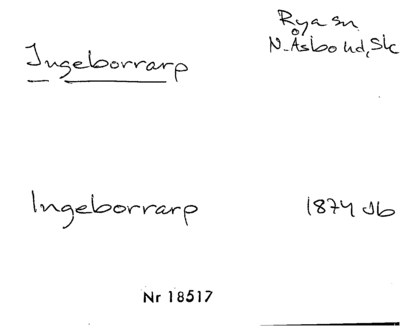 Ingeborrarp
Rya sn
N. Åsbo hd, Sk
Ingeborrarp
1874 Jb
Nr 18517